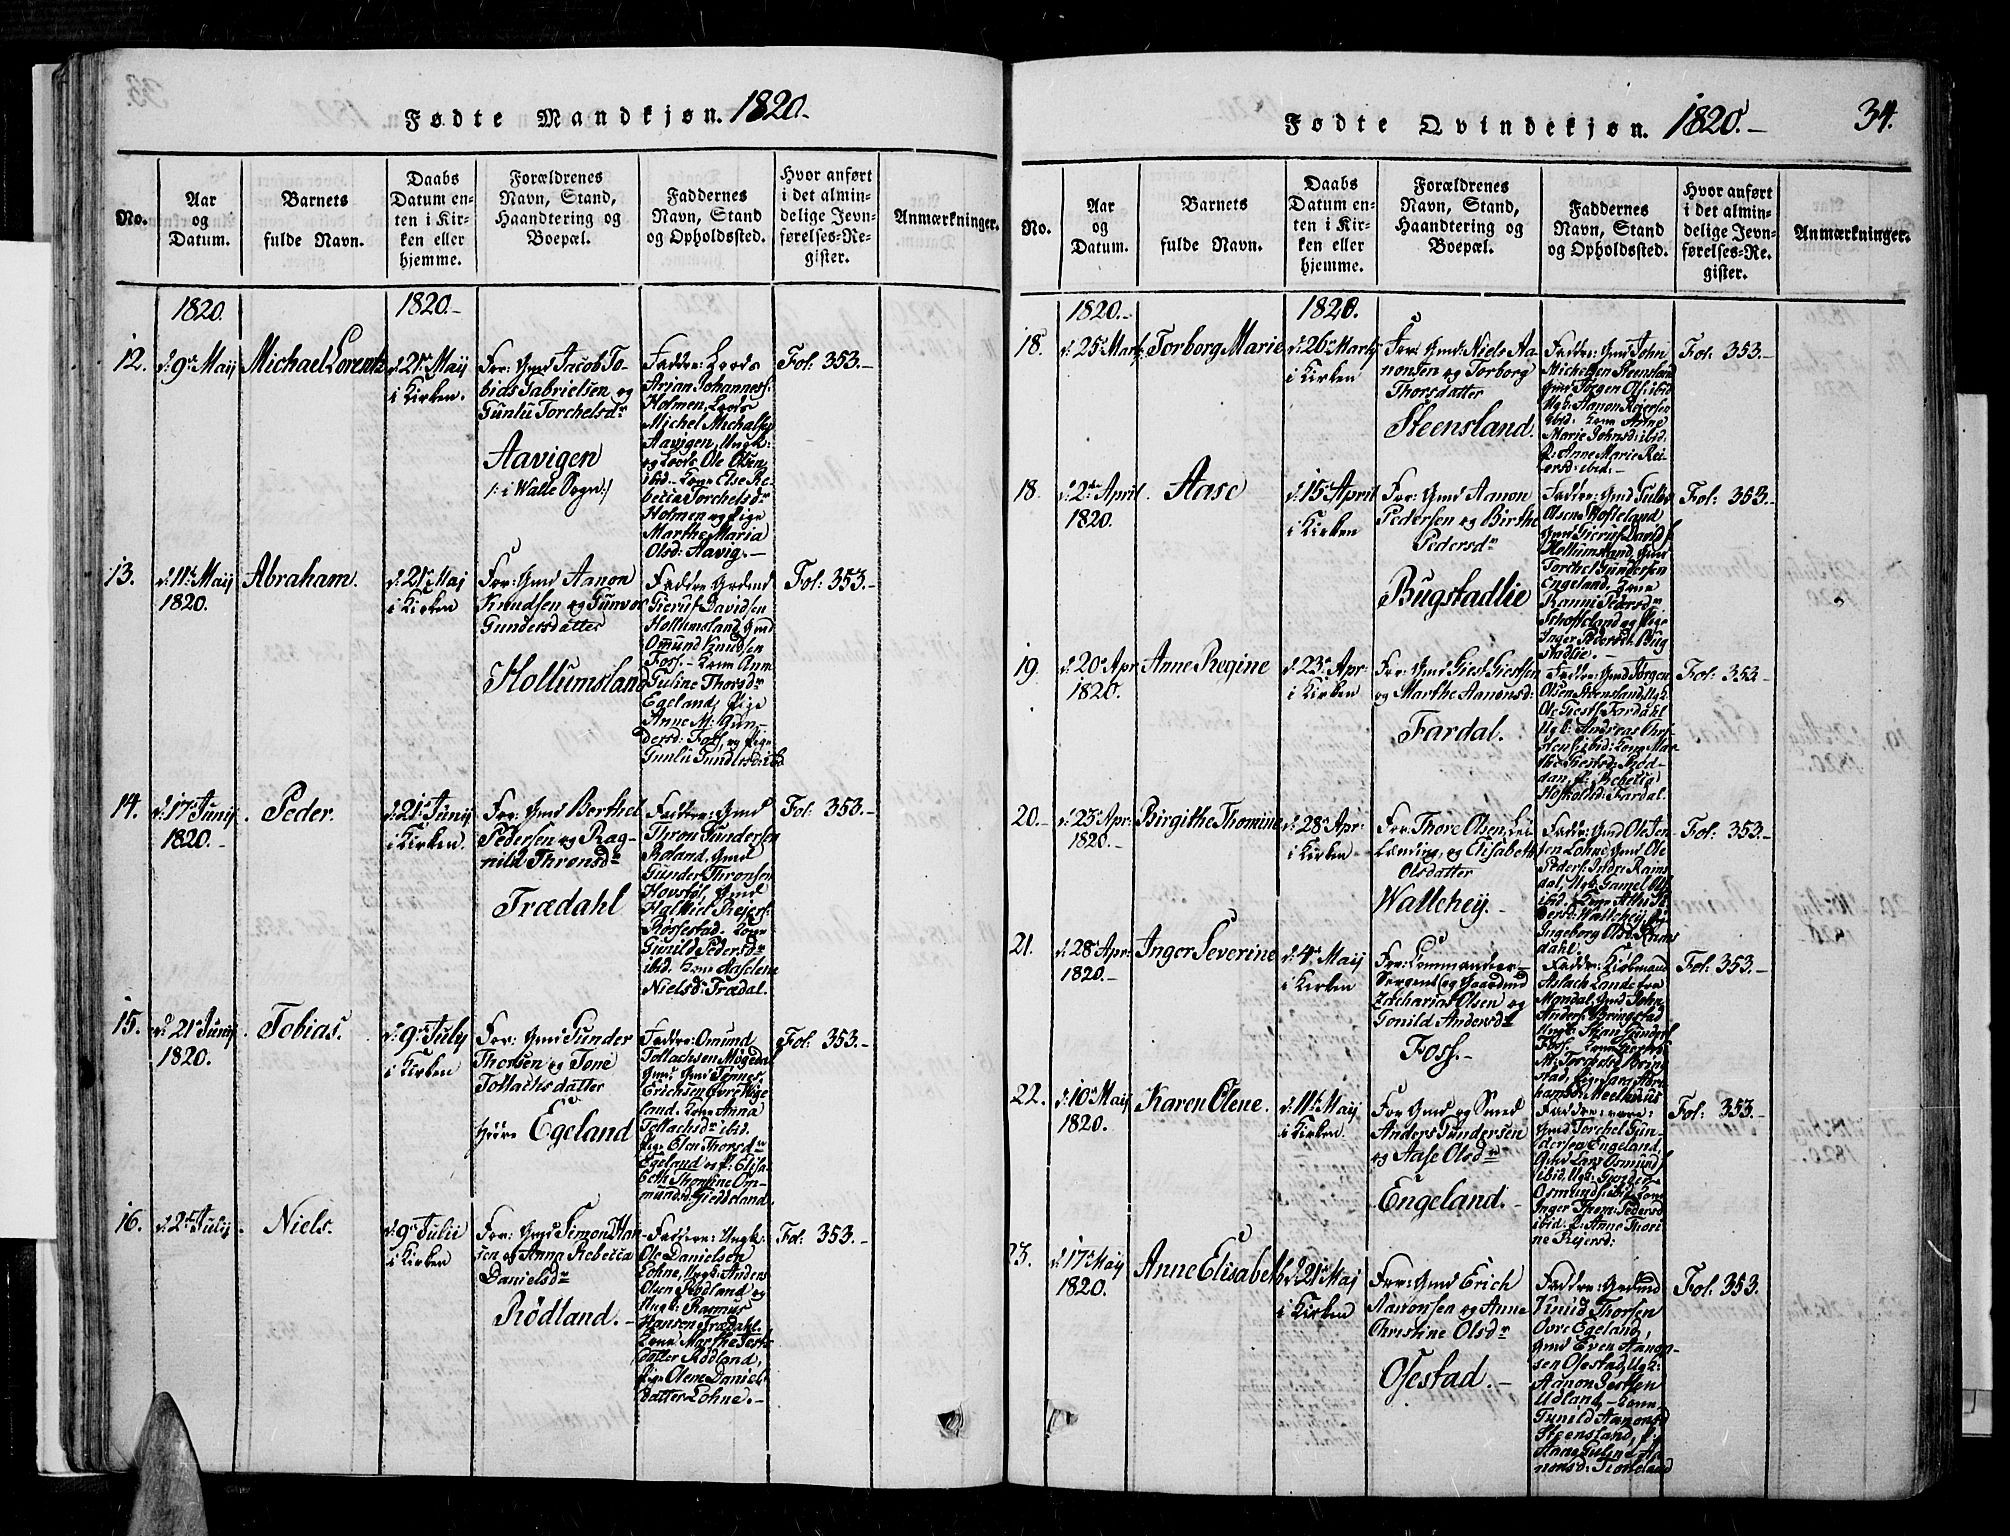 Fødte Mandkjøn. 1820.-
No.
Aar
og
Datum.
Barnets
fulde Navn.
Daabs
Datum en-
ten i Kir-
ken eller
hjemme.
Forældrenes
Navn, Stand,
Haandtering og
Boepæl.
Faddernes
Navn, Stand
og Opholdssted.
Hvor anført
i det almin-
delige Jevn-
førelses-Re-
gister.
Anmærkninger.
1820.
1820.-
12.
d: 9de Maij
Michael Lorentz
d: 21de Maij
i Kirken.
For: Gmd Jacob To-
bias Gabrielsen og
Gunlu Torchelsdr
Aavigen
/: i Walle Sogn:/
Arian Johannes:
Holmen,
Aavigen, Ungk:
Ole Olsen
ibid.- Kone Else Re-
becca Torchelsdr
Holmen og Pige
Marthe Maria
Olsd: Aavig.-
Fol: 353.-
13.
d: 11te Maij
1820.
Abraham.
d: 21de Maj
i Kirken
For: Gmd Aanon
Knudsen og Gunvor
Gundersdatter
Hollumsland
Gierul Davidsen
Hollumsland, Gmd
Ommund Knudsen
Foss.- Kone Ann
Guline Thorsdr
Egeland, Pige
Anne M: Gun-
dersd: Foss, og Pige
Gunlu Gundersd: ibd
Fol: 353.-
14.
d: 17de Junij
1820.-
Peder.
d: 21de Junij
i Kirken.
For: Gmd Berthel
Pedersen og Rag-
nild Thronsdr
Trædahl
Faddre: Gmd
Thron Gundersen
Roland, Gmd
Gunder Thronsen
Hovstøl, Gmd
Halvier Reiers:
Røssestad. Kone
Gunild Pedersdr
ibid. Kone Aaselene
Nielsd: Trædal.
Fol: 353.-
15.
d 21de Junij
1820.
Tobias.
d: 9de July
i Kirken
For: Gmd Gunder
Thorsen og Tone
Tollachsdatter
Egeland
Faddre: Omund
Tollachsen Møgedal
Erichsen Øvre Øige
land. Kone Anna
Tollachsdr ibid.
Pige Elen Thorsdr
Egeland og P: Elisa
beth Thomine Om-
mundsd: Giddeland.
Fol: 353.-
16.
d: 2de Julij
Niels.
d: 9de Julii
i Kirken
For: Gmd Simon Han
sen og Anna Rebecca
Danielsdr
Rödland.-
Faddere: Ungk:
Ole Danielsen
Lohne, Ungk: Anders
Olsen Rødland og
Ungk: Rasmus
Hansen Trædahl.
Kone Marthe Terk-
datter Rødland,
Pige Olene Daniel-
datter Lohne.-
Fol: 353.-
Fødte Qvindekjøn. 1820.-
34.
No.
Aar
og
Datum.
Barnets
fulde Navn.
Daabs
Datum en-
ten i Kir-
ken eller
hjemme.
Forældrenes
Navn, Stand,
Haandtering og
Boepæl.
Faddernes
Navn, Stand
og Opholdssted.
Hvor anført
i det almin-
delige Jevn-
førelses-Re-
gister.
Anmærkninger.
1820.-
1820.
18.
d: 25de Martz
Torborg Marie
d: 26de Martz
i Kirken
For: Gmd: Niels Aa-
nonsen og Torborg
Thorsdatter
Steensland.
Faddre: Gmd John
Michelsen Steensland
Gmd Jørgen Ols: ibid
Ugk: Aanon Reiersen
ibid: Kone Anne
Marie Johnsd: ibid.
P: Anne Marie Rei-
ersd: ibid:-
Fol: 353.-
18.
d: 2den April
1820.
Aase
d: 15de April
i Kirken
For: Gmd Aanon
Pedersen og Birthe
Pedersdr
Bugstadlie
Faddre: Gmd Gulov
Olsen Skofteland
Gmd Gierul Davids
Hollumsland, Gmd
Torchel Gundersen
Engeland. Kone
Ranni Pedersdr
Schofteland og Pige
Inger Pedersdr. Bug
stadlie.-
Fol: 353.-
19.
d: 20de Apr
1820.
Anne Regine
d: 23de Apr
i Kirken
For: Gmd Giest Giestsen
og Marthe Aanonsd:
Fardal.
Faddre: Gmd Jørgen
Olsen Steensland, Ugk:
Ole Giests: Fardahl
Ugk: Andreas Chri-
stens: ibid: Kone Mar-
the Giestsd: Rød-
dan, P: Rebecca
Hoskolsd: Fardal.
Fol: 353-
20.-
d: 25de Apr:
1820.-
Birgithe Thomine
d: 28de Apr:
i Kirken
For: Thore Olsen, Lei-
lænding, og Elisabeth
Olsdatter
Wallehey.-
Faddre: Gmd Ole Jen
sen Lohne, Gmd Ole
Peders: Indre Rams
dal, Ugk: Gamel Ols:
ibid.
dersd: Wallehey,
Ingeborg Olsd: Rams
dahl
Fol: 353.-
21.
d: 28de Apr:
1820.-
Inger Severine
d: 4de Maij
i Kirken
For: Commandeer-
Sergent og Gaardmd
Zacharias Olsen og
Gonild Andersdr
Foss.-
Faddre: Kiøbmand
Aslach Lande fra
Mandal, Gmd John
Anders: Bringstad
Ungk: Stian Gunders:
Foss.
Fol: 353.-
22.
d: 10de Maij
1820.
Karen Olene.
d: 11te Maij
i Kirken.
For: Gmd og Smed
Anders Gundersen
og Aase Olsdr
Engeland.-
Faddre: vare:
Gmd Torchel Gun-
dersen Engeland,
Gmd Lars Osmunds:
ibid, Ugk: Gunder
Osmunds: ibid, Kone
Inger Thom: Pedersd
ibid: P: Anne Thori-
ne Reiersd:
Fol: 353.-
23.
d: 17de Maij
1820.
Anne Elisabeth
d 21de Maj
i Kirken
For: Gmd Erich
Aanonsen og Anne
Christine Olsdr
Osestad.-
Faddre: Gmd
Knud Thorsen
Øvre Egeland,
Gmd Even Aanon-
sen Osestad, Ugk:
Aanon Jertsen
Udland,- Kone
Gunild Aanonsd
Steensland, P:
Anne Guline Aa-
nonsd:
Fol: 353.